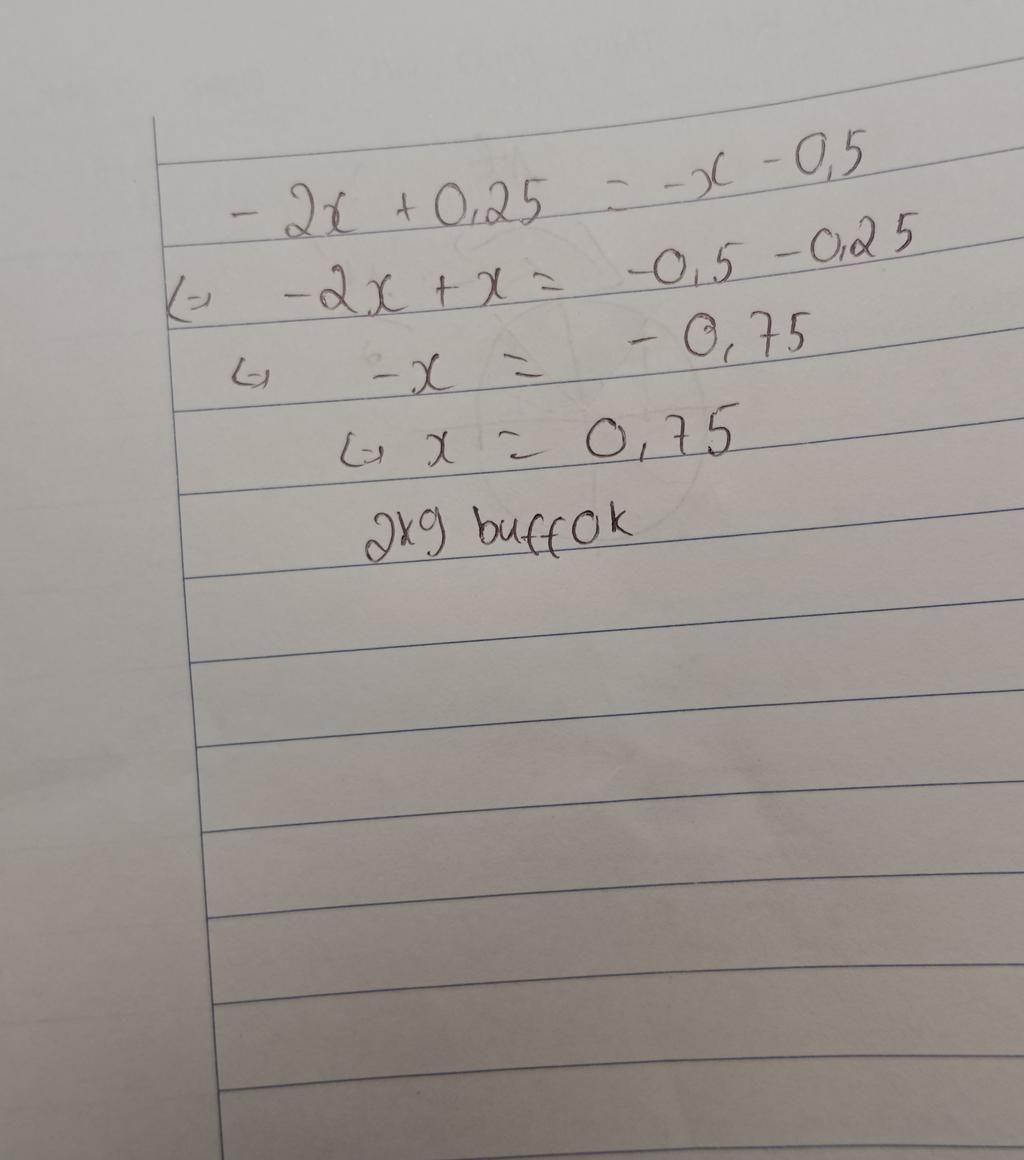 - 2x + 0,25 = -x - 0,5
<=> -2x + x = -0,5 - 0,25
<=> -x = - 0,75
<=> x = 0,75
2kg buffok